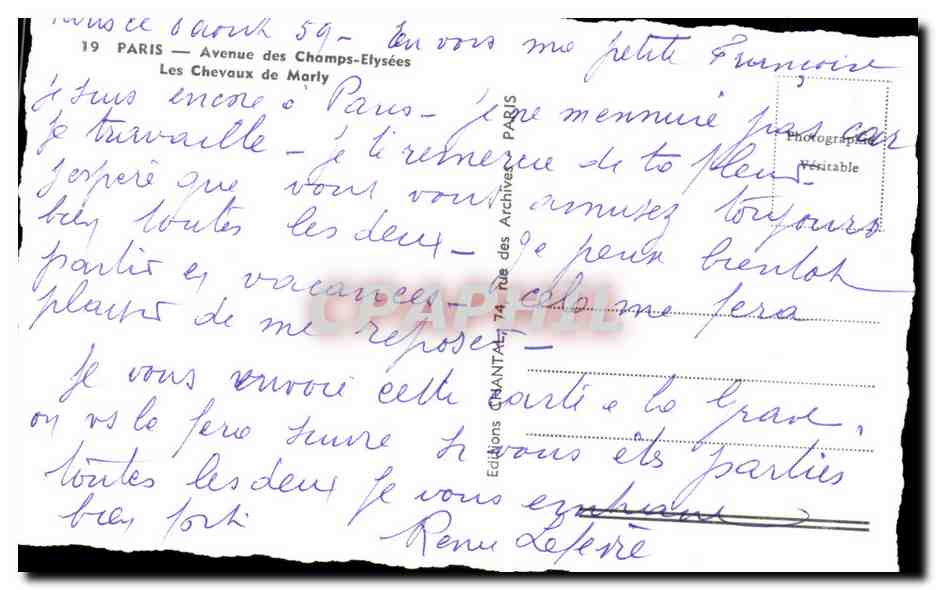 Paris ce 6 août 59 - En vois ma petite Françoise
19 PARIS — Avenue des Champs-Elysées
Les Chevaux de Marly
je suis encore à Paris - je ne m'ennuie pas car
je travaille - je te remercie de ta fleur -
j'espère que vous vous amusez toujours
bien toutes les deux - Je peux bientot
partir en vacances - cela me fera
plaisir de me reposer -
Je vous envoie cette carte a la Grave,
on vs la fera suivre si vous êtes parties
toutes les deux je vous embrasse
bien fort
Renee Lefevre
Photographie
Véritable
Editions CHANTAL, 74, rue des Archives - PARIS
CPAPHIL